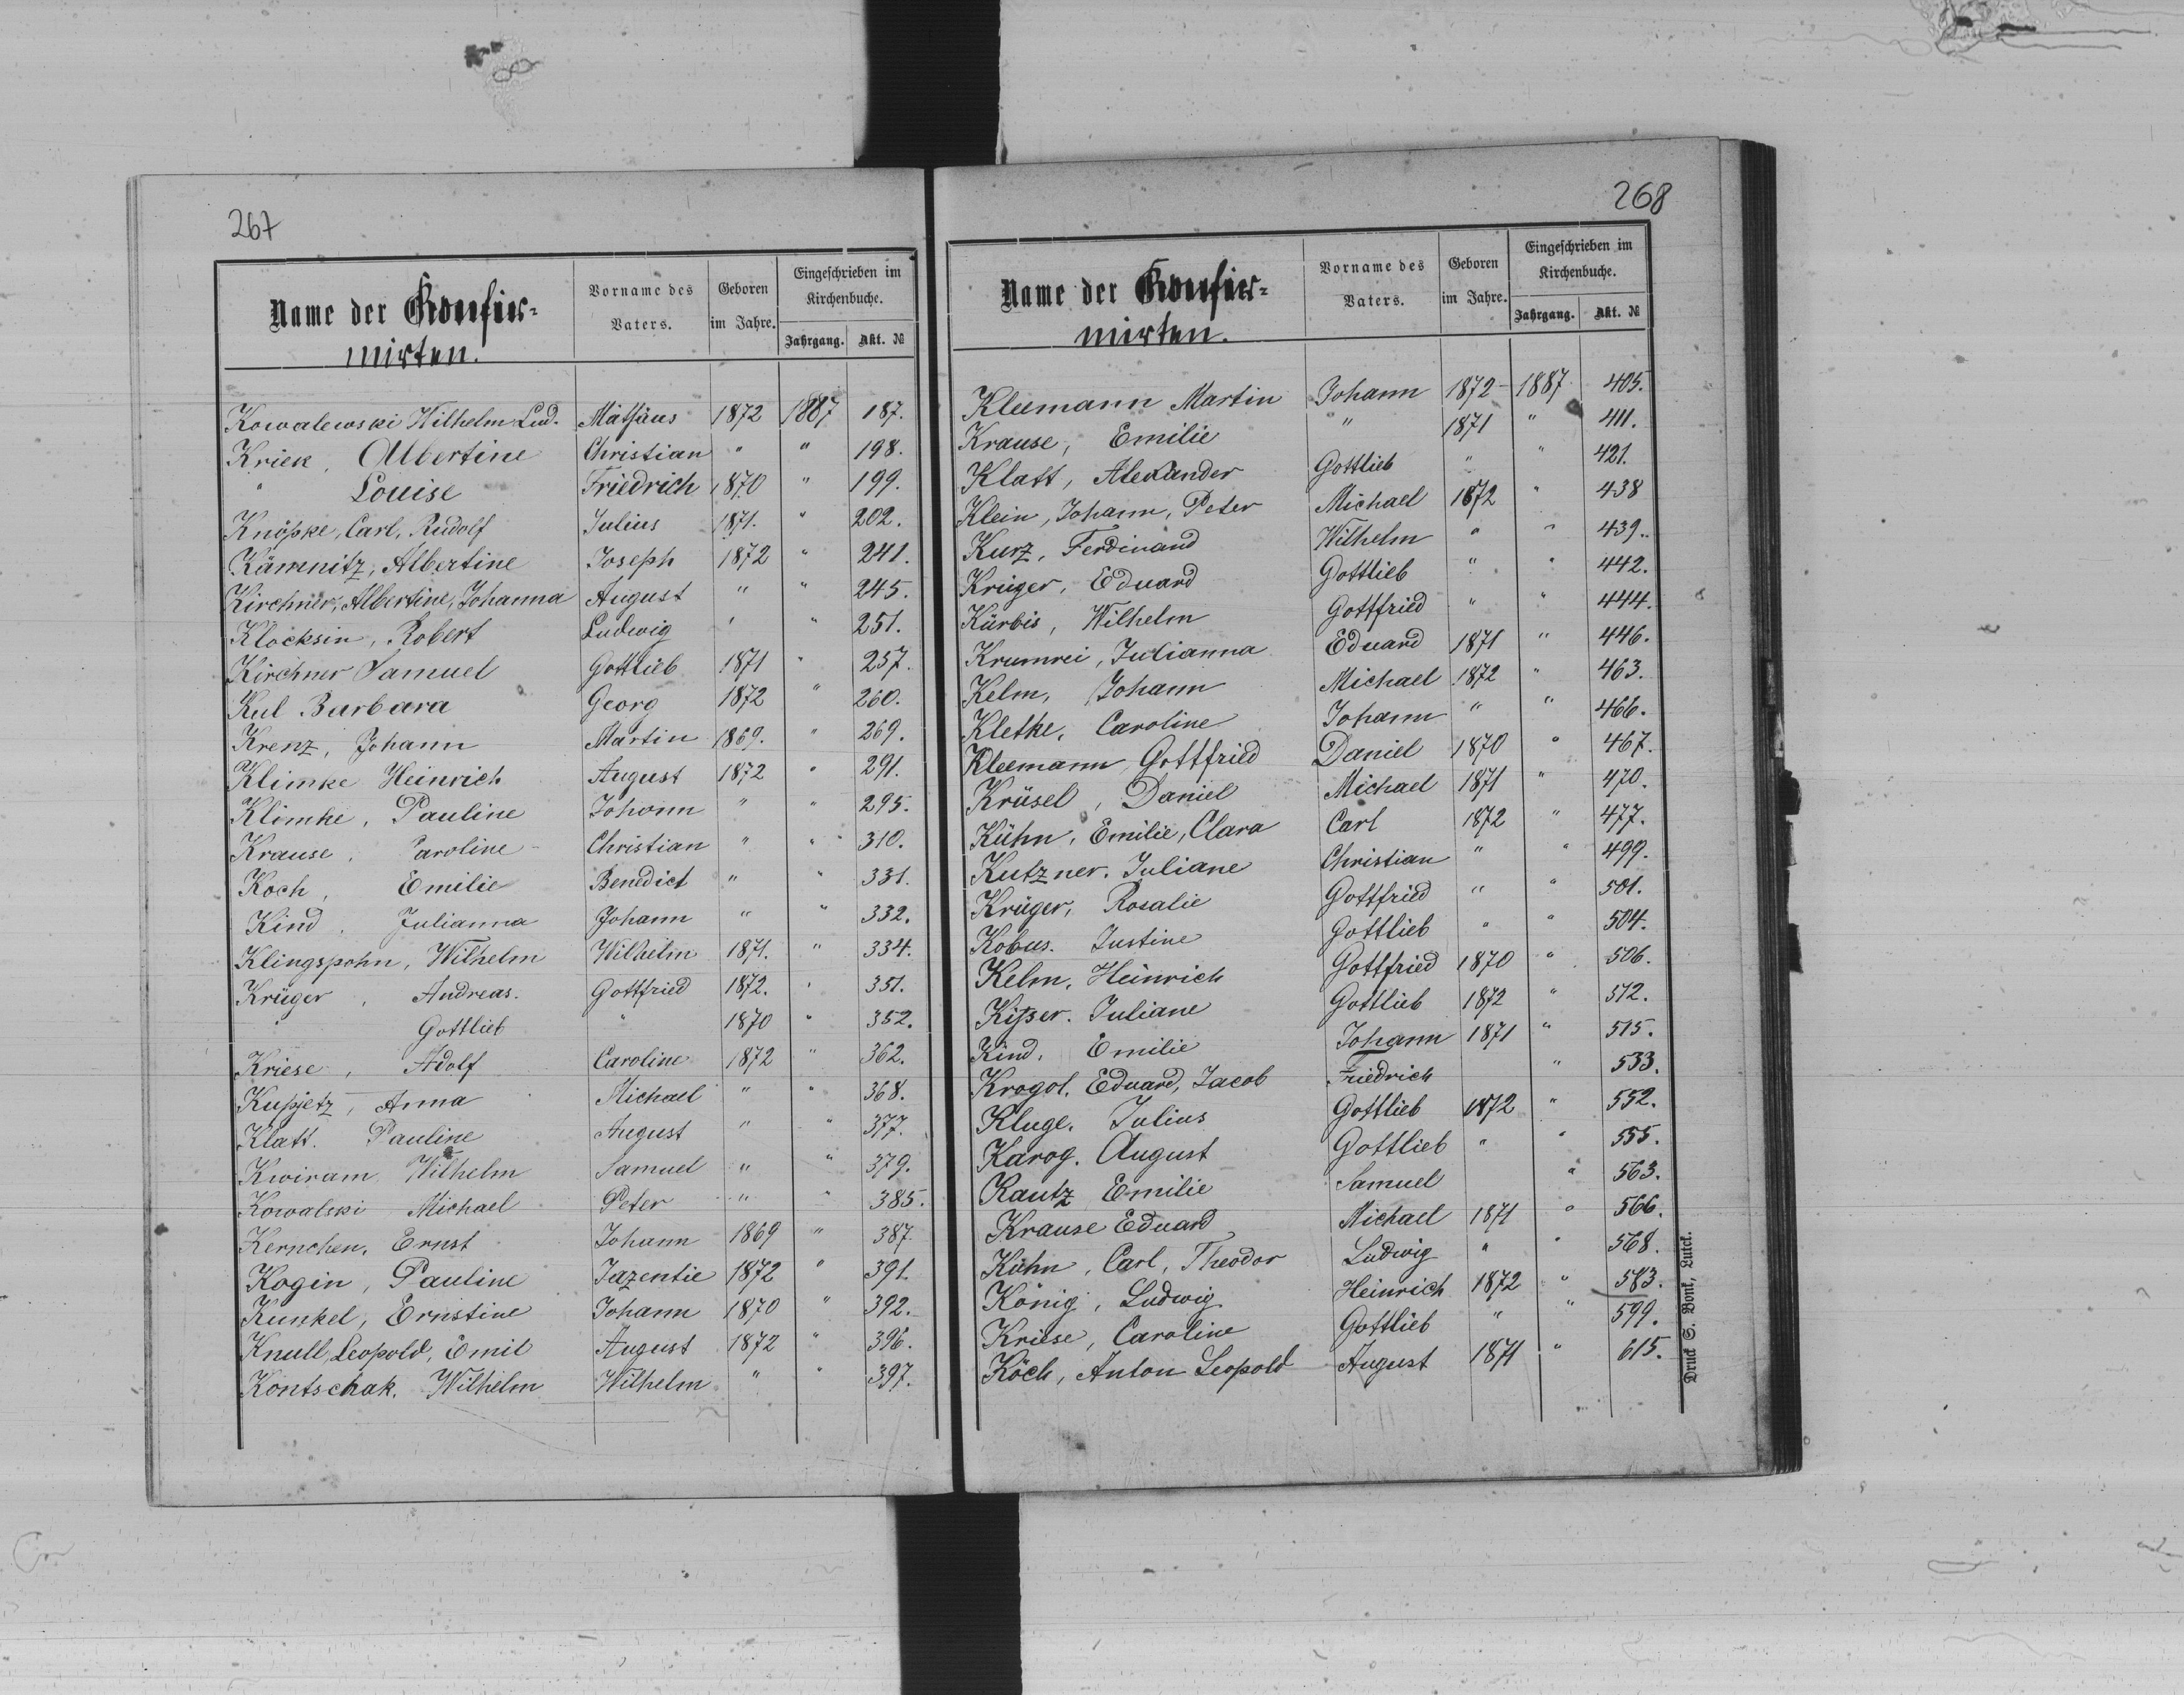 267
Name der Konfir-
mirten.
Vorname des Vaters.
Geboren im Jahre.
Eingeschrieben im Kirchenbuche.
Jahrgang. Akt. №
Kowalewski Wilhelm Lud. Mathäus 1872 1887 187.
Kriek, Albertine Christian " " 198.
" Louise Friedrich 1870 " 199.
Knöpke, Carl, Rudolf Julius 1871. " 202.
Kämnitz, Albertine Joseph 1872 " 241.
Kirchner, Albertine, Johanna August " " 245.
Klöcksin, Robert Ludwig " " 251.
Kirchner Samuel Gottlieb 1871 " 257.
Kul Barbara Georg 1872 " 260.
Krenz, Johann Martin 1869. " 269.
Klimke Heinrich August 1872 " 291.
Klimke, Pauline Johann " " 295.
Krause, Caroline Christian " " 310.
Koch, Emilie Benedict " " 331.
Kind, Julianna Johann " " 332.
Klingspohn, Wilhelm Wilhelm 1871. " 334.
Krüger, Andreas. Gottfried 1872. " 351.
" Gottlieb " 1870 " 352.
Kriese, Adolf Caroline 1872 " 362.
Kupjetz, Anna Michael " " 368.
Klatt. Pauline August " " 377.
Kwiram Wilhelm Samuel " " 379.
Kowalski Michael Peter " " 385.
Kernchen, Ernst Johann 1869 " 387
Kogin, Pauline Jazentie 1872 " 391.
Kunkel, Ernstine Johann 1870 " 392.
Knull, Leopold, Emil August 1872 " 396.
Kontschak. Wilhelm Wilhelm " " 397.
268
Name der Konfir-
mirten.
Vorname des Vaters.
Geboren im Jahre.
Eingeschrieben im Kirchenbuche.
Jahrgang. Akt. №
Kleemann Martin Johann 1872 1887 405.
Krause, Emilie " 1871 " 411.
Klatt, Alexander Gottlieb " " 421.
Klein, Johann, Peter Michael 1872 " 438
Kurz, Ferdinand Wilhelm " " 439.
Krüger, Eduard Gottlieb " " 442.
Kürbis, Wilhelm Gottfried " " 444.
Krumrei, Julianna Eduard 1871 " 446.
Kelm, Johann Michael 1872 " 463.
Klethe, Caroline Johann " " 466.
Kleemann, Gottfried Daniel 1870 " 467.
Krüsel, Daniel Michael 1871 " 470.
Kühn, Emilie, Clara Carl 1872 " 477.
Kutzner. Juliane Christian " " 499.
Krüger, Rosalie Gottfried " " 501.
Kobus. Justine Gottlieb " " 504.
Kelm, Heinrich Gottfried 1870 " 506.
Kißer. Juliane Gottlieb 1872 " 512.
Kind, Emilie Johann 1871 " 515.
Krogol, Eduard, Jacob Friedrich " 533.
Kluge, Julius Gottlieb 1872 " 552.
Karog. August Gottlieb " " 555.
Kautz Emilie Samuel " 563.
Krause Eduard Michael 1871 " 566.
Kühn, Carl, Theodor Ludwig " " 568.
König, Ludwig Heinrich 1872 " 583.
Kriese, Caroline Gottlieb " " 599.
Köch, Anton Leopold August 1871 " 615.
Druck S. Bonk, Lutck.